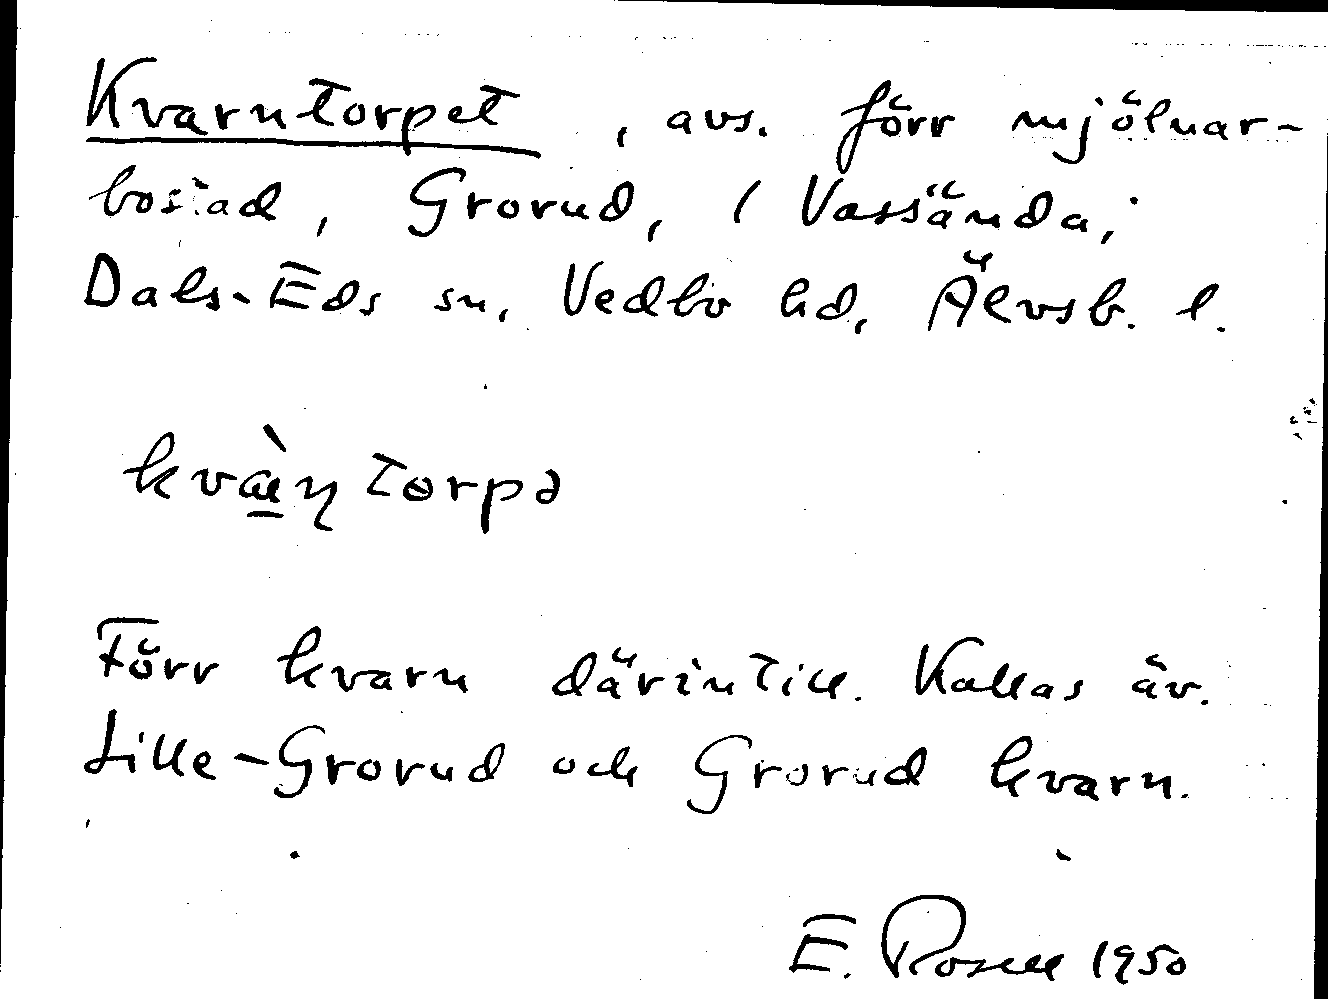 Kvarntorpet, avs. förr mjölnar-
bostad, Grorud, (Vassända,
Dals-Eds sn, Vedbo hd, Älvsb. l.
kvæ̀ɳtorpə
Förr kvarn därintill. Kallas äv.
Lille-Grorud och Grorud kvarn.
E. Rosell 1950